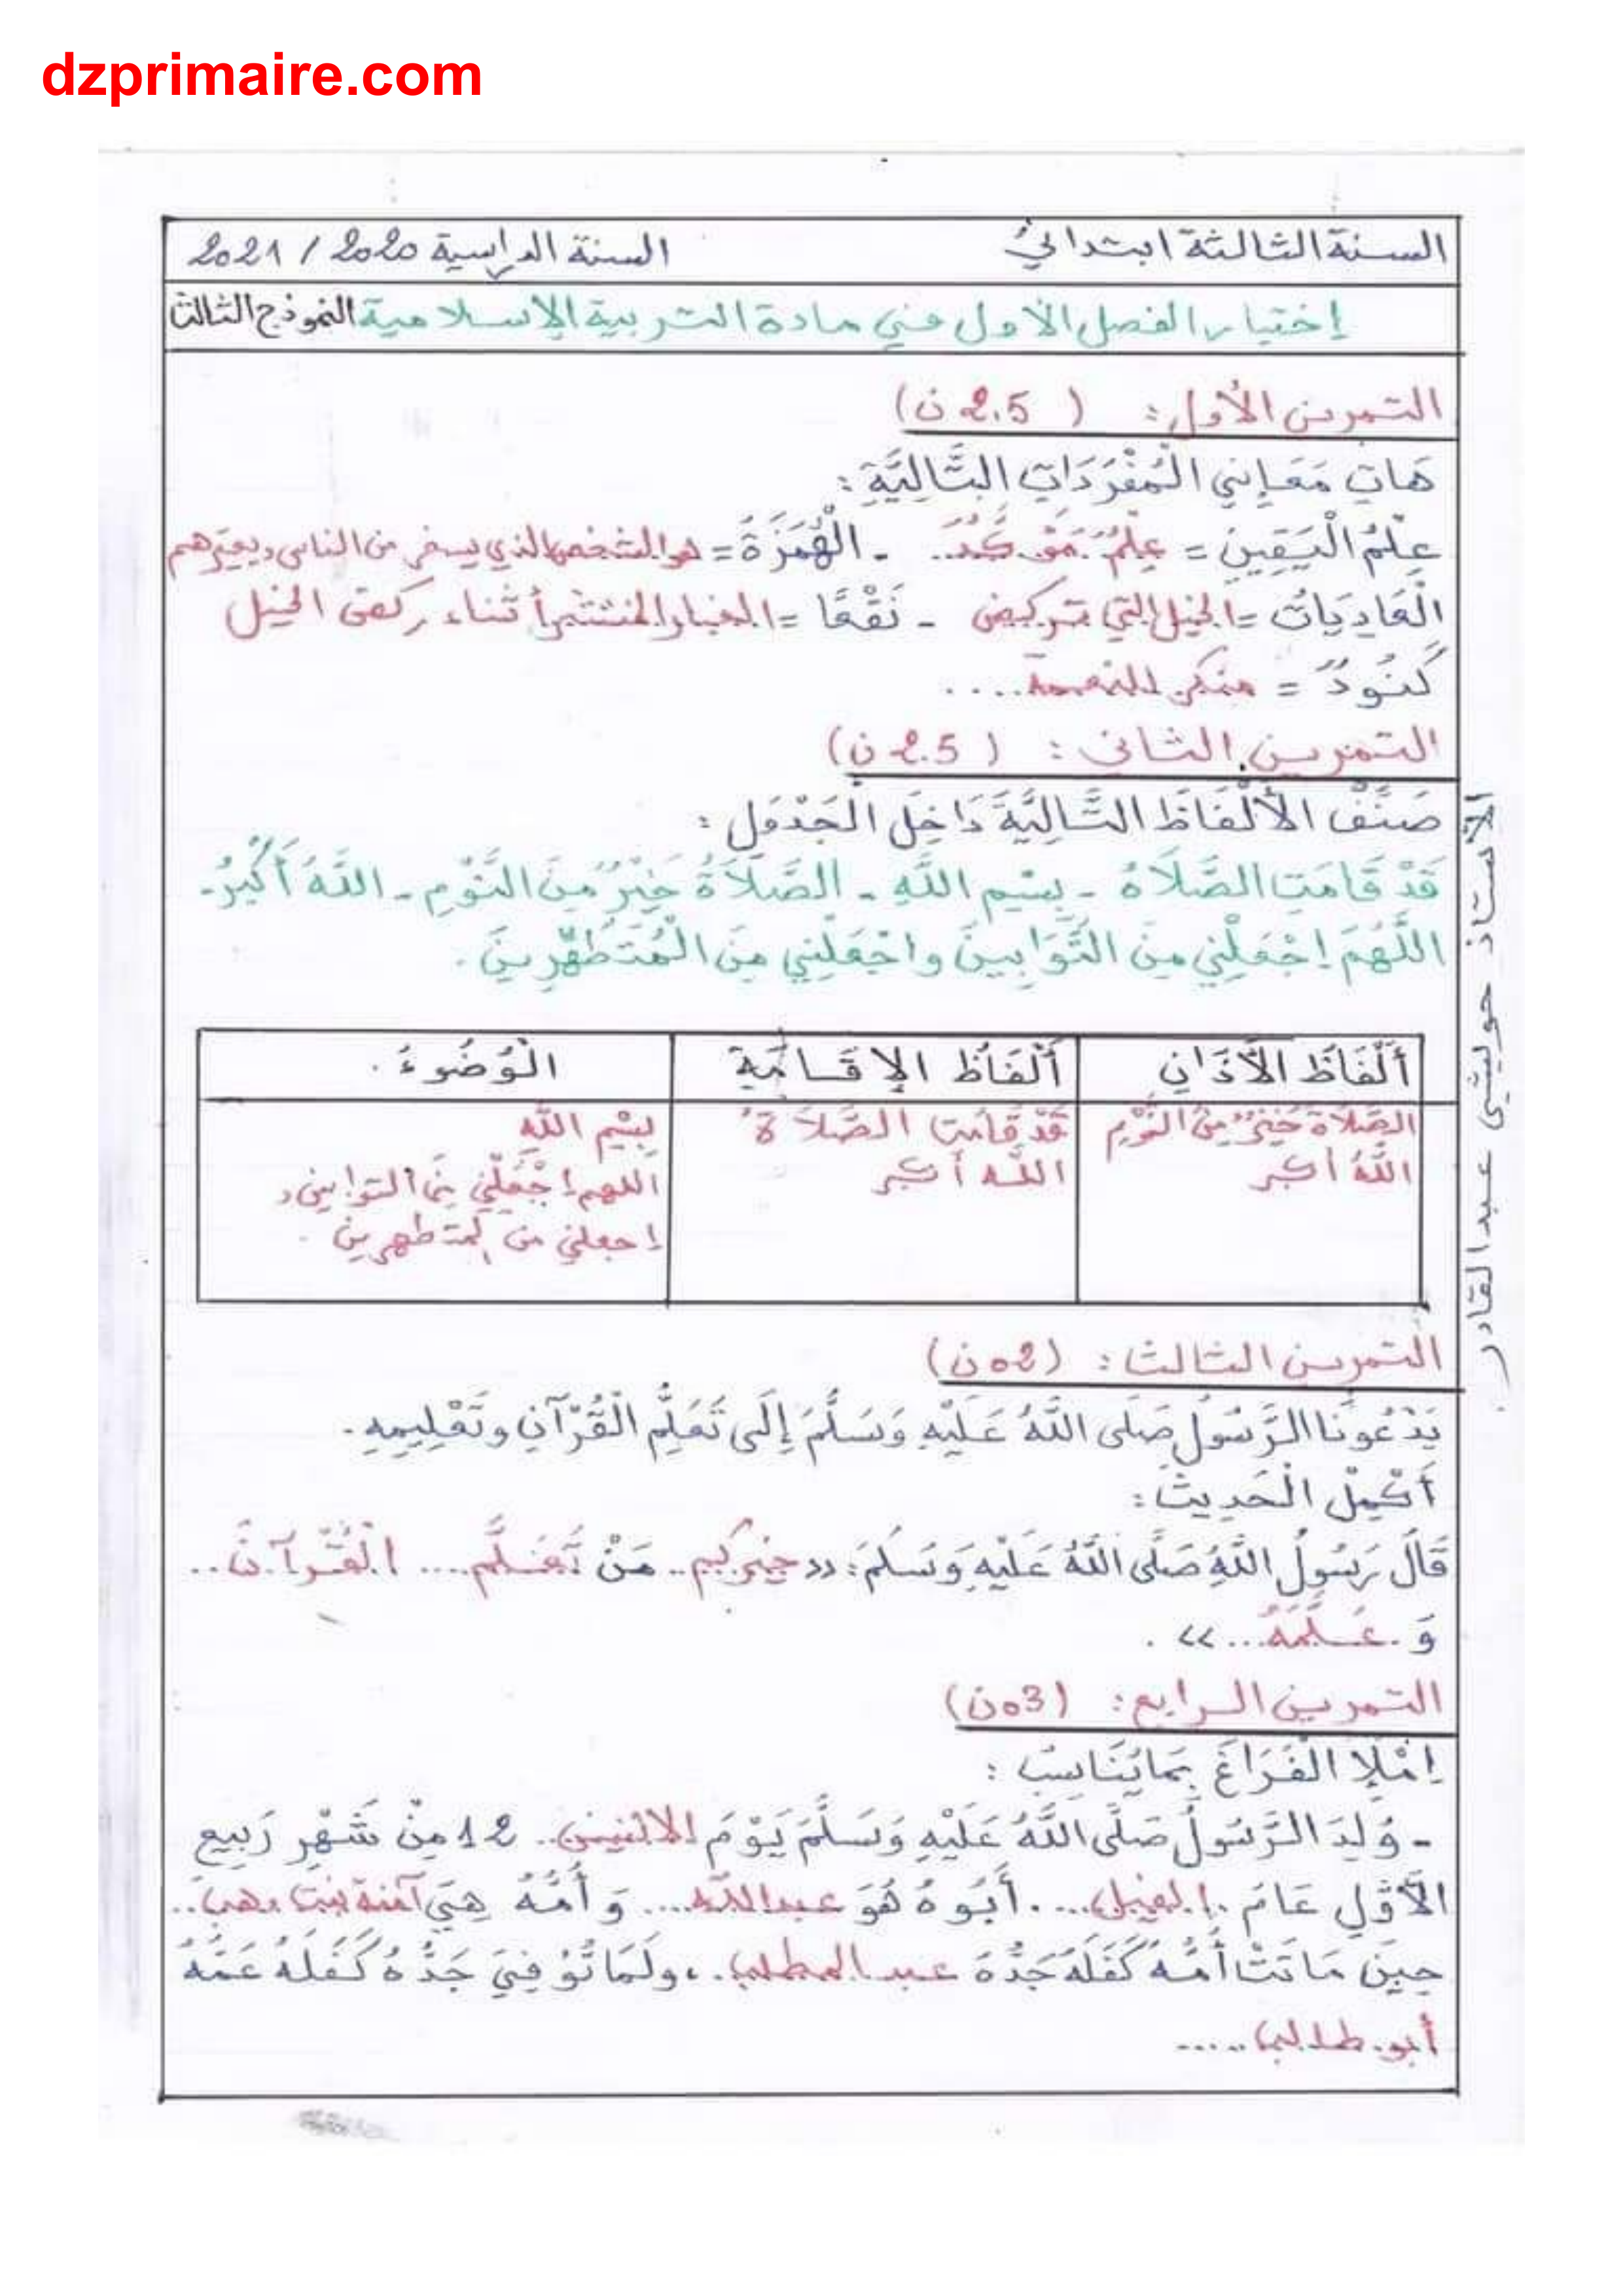 dzprimaire.com
السنة الثالثة ابتدائي السنة الدراسية 2020 / 2021
إختبار الفصل الأول في مادة التربية الإسلامية النموذج الثالث
التمرين الأول: ( 2.5 ن)
هَاتِ مَعَانِي الْمُفْرَدَاتِ التَّالِيَّةِ :
عِلْمُ الْيَقِينِ = عِلْمٌ مُؤَكَّدٌ.. - الْهُمَزَةُ = هو الشخص الذي يسخر من الناس ويعيرهم
الْعَادِيَاتُ = الخيل التي تركض - نَقْعًا = الغبار المنتشر أثناء ركض الخيل
كَنُودٌ = منكر للنعمة....
التمرين الثاني : ( 2.5 ن)
صَنِّفْ الأَلْفَاظَ التَّالِيَّةَ دَاخِلَ الْجَدْوَلِ :
قَدْ قَامَتِ الصَّلاَةُ - بِسْمِ اللَّهِ - الصَّلاَةُ خَيْرٌ مِنَ النَّوْمِ - اللَّهُ أَكْبَرُ -
اللَّهُمَ إجْعَلْنِي مِنَ التَّوَابِينَ واجْعَلْنِي مِنَ الْمُتَطَهِّرِينَ .
أَلْفَاظُ الأَذَانِ أَلْفَاظُ الإِقَامَةِ الْوُضُوءُ .
الصَّلاَةُ خَيْرٌ مِنَ النَّوْمِ قَدْ قَامَتِ الصَّلاَةُ بِسْمِ اللَّهِ
اللَّهُ أكبر اللَّه أكبر اللهم إجْعَلْنِي مِنَ التوابين و
إجعلني من المتطهرين .
التمرين الثالث : (02ن)
يَدْعُونَا الرَّسُولُ صَلَى اللَّهُ عَلَيْهِ وَسَلَّمَ إِلَى تَعَلُّمِ الْقُرْآنِ وتَعْلِيمِهِ.
أَكْمِلْ الْحَدِيثَ :
قَالَ رَسُولُ اللَّهِ صَلَّى اللَّهُ عَلَيْهِ وَسَلَّمَ: «خيركم.. مَنْ تَعَلَّمَ.... الْقُرْآنَ..
وَ.عَلَّمَهُ...» .
التمرين الرابع : (03ن)
اِمْلَإِ الْفَرَاغَ بِمَا يُنَاسِبُ :
- وُلِدَ الرَّسُولُ صَلَّى اللَّهُ عَلَيْهِ وَسَلَّمَ يَوْمَ الاثنين.. 12 مِنْ شَهْرِ رَبِيعِ
الأَوَّلِ عَامَ .الفيل.... أَبُوهُ هُوَ عبد الله.... وَ أُمُّهُ هِيَ آمنة بنت وهب..
حِينَ مَاتَتْ أُمُّهُ كَفَلَهُ جَدُّهُ عبد المطلب..، ولَمَا تُوُفِيَ جَدُّهُ كَفَلَهُ عَمُّهُ
أبو.طالب.....
الأستاذ حوليشي عبد القادر.